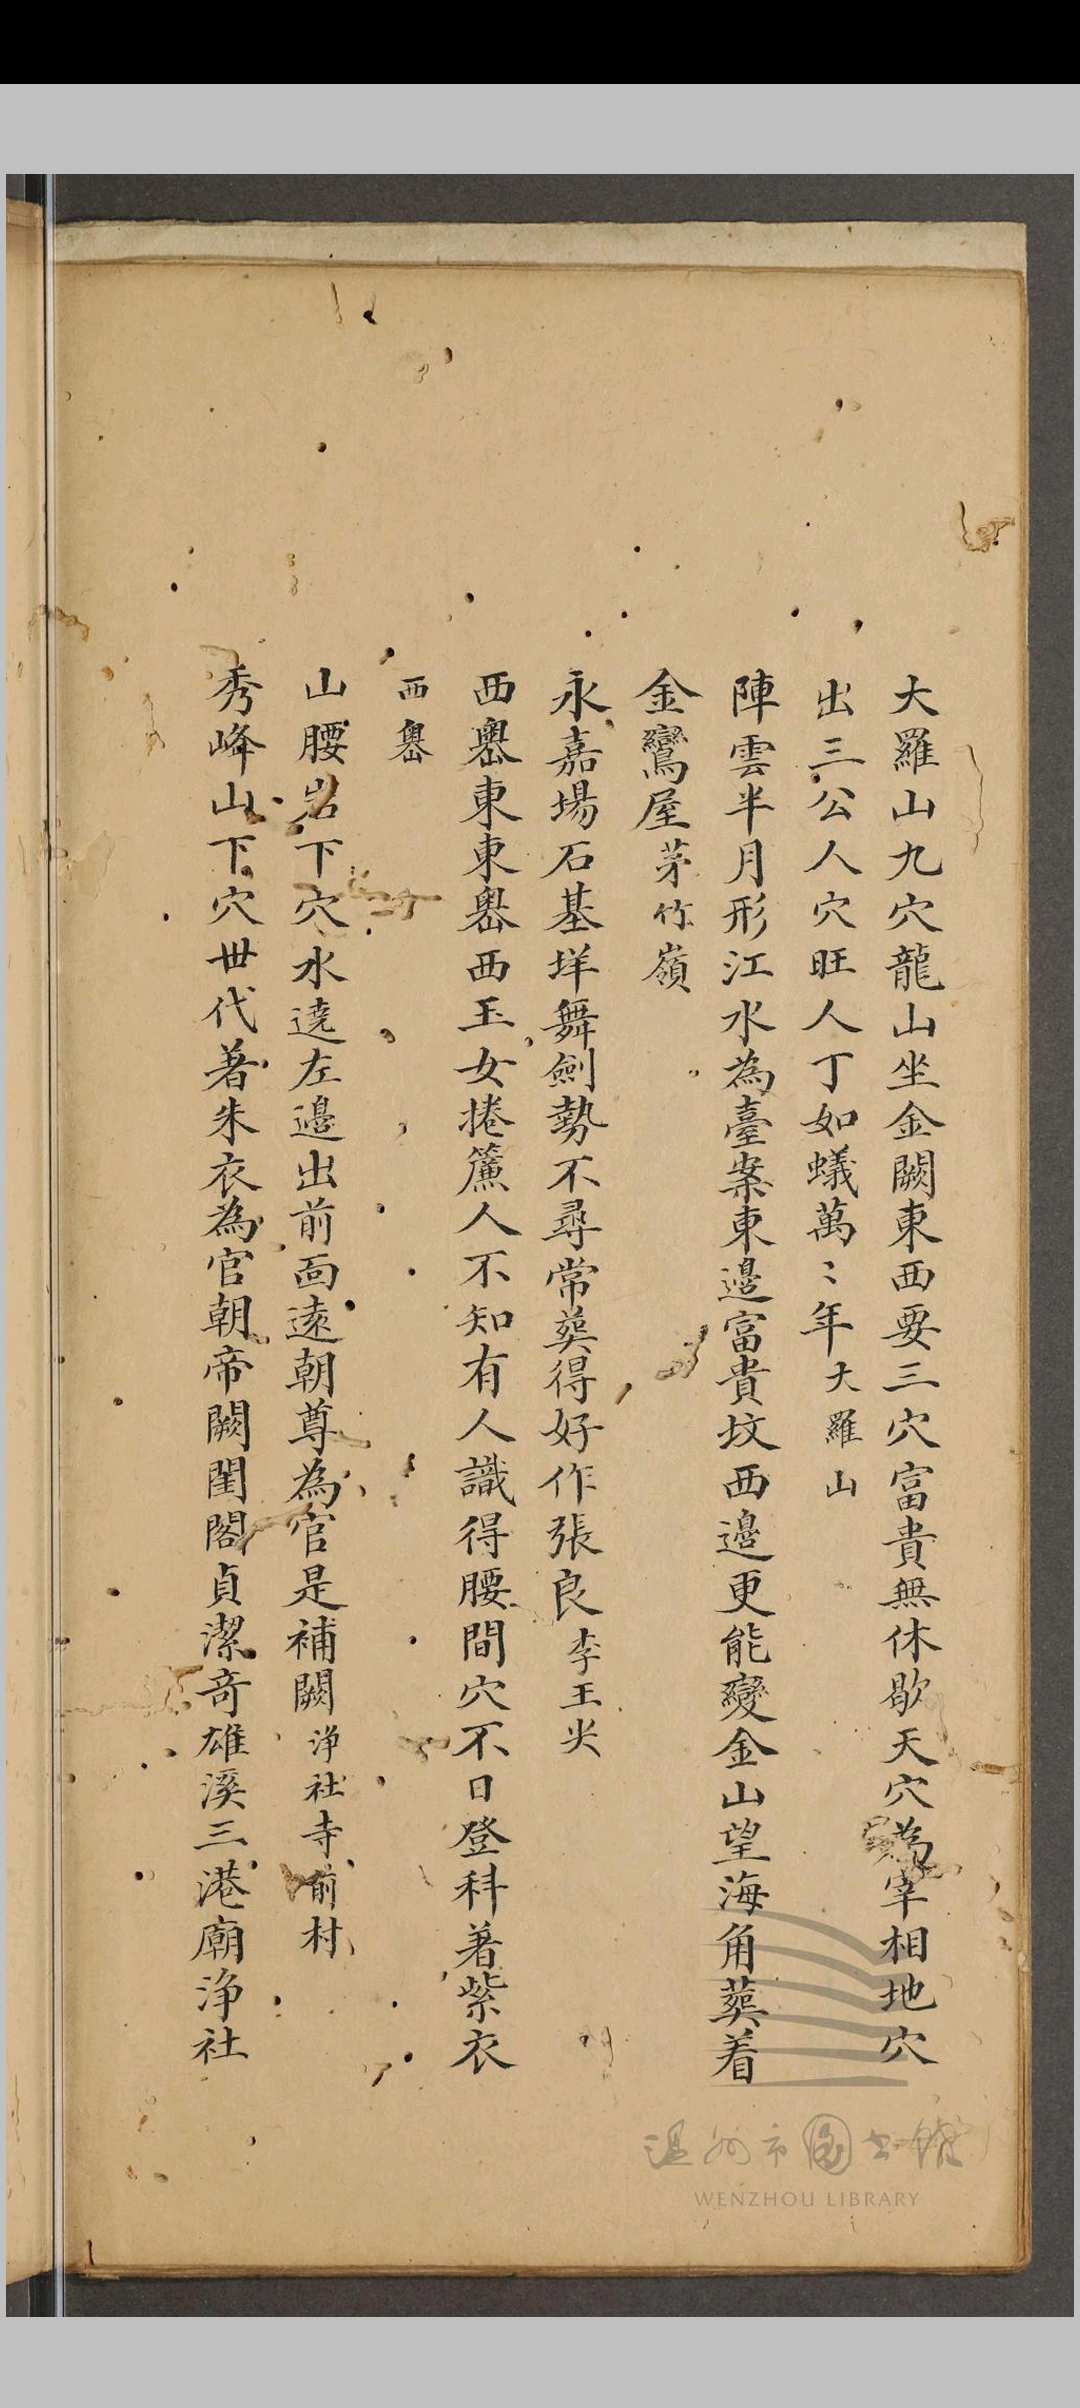 大羅山九穴龍山坐金闕東西要三穴富貴無休歇天穴為宰相地穴
出三公人穴旺人丁如蟻萬〻年大羅山
陣雲半月形江水為臺案東邊富貴坟西邊更能變金山望海角葬着
金鸞屋茅竹嶺
永嘉場石基垟舞劍勢不尋常葬得好作張良李王尖
西嶴東東嶴西玉女捲簾人不知有人識得腰間穴不日登科着紫衣
西嶴
山腰岩下穴水遶左邊出前面遠朝尊為官是補闕淨社寺前村
秀峰山下穴世代著朱衣為官朝帝闕閨閣貞潔奇雄溪三港廟淨社
温州市图书馆
WENZHOU LIBRARY